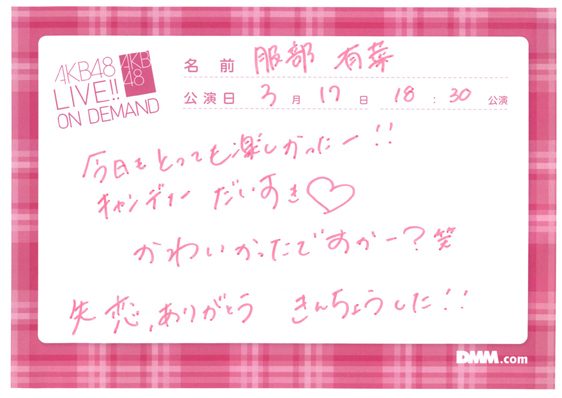 AKB48
LIVE!!
ON DEMAND
AKB
48
名前 服部 有菜
公演日 3月17日 18:30 公演
今日もとっても楽しかったー!!
キャンディー だいすき♡
かわいかったですかー?笑
失恋、ありがとう きんちょうした!!
DMM.com